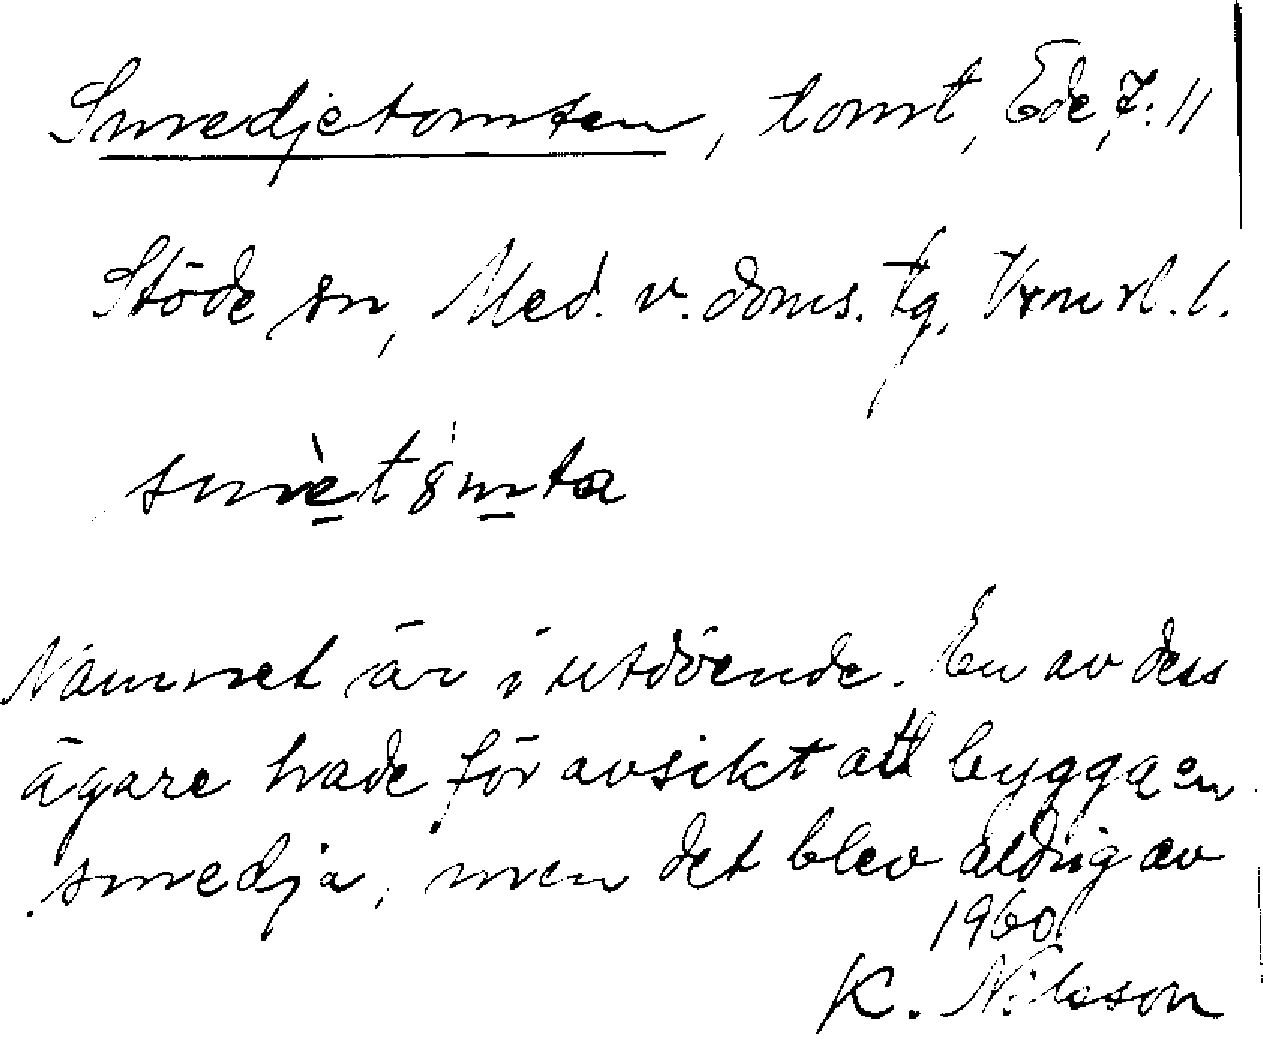 Smedjetomten, tomt, Ede, 7:11
Stöde sn, Med. v. doms. tg, Vrnrl. l.
Namnet är i utdöende. En av dess
ägare hade för avsikt att bygga en
smedja, men det blev aldrig av
1960
K. Nilsson